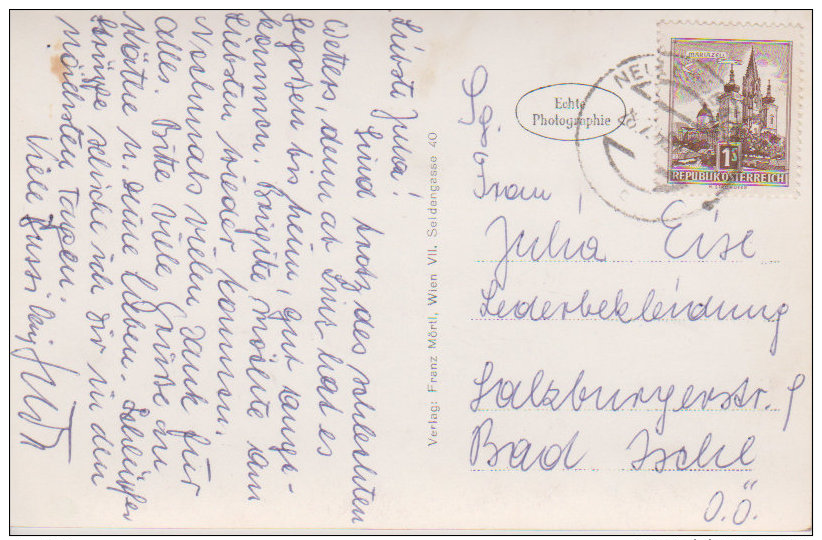 Liebste Julia!
Sind trotz des schlechten
Wetters, denn ab Linz hat es
gegossen bis heim, gut ange-
kommen. Brigitte möchte am
Liebsten wieder kommen.
Nochmals vielen Dank für
alles. Bitte viele Grüsse an
u. Deine Lieben.
schicke ich Dir in den
nächsten Tagen.
Viele Bussi
Verlag: Franz Mörtl, Wien VII, Seidengasse 40
Echte
Photographie
MARIAZELL
1 S
REPUBLIK ÖSTERREICH
Frau
Julia Eisl
Lederbekleidung
Salzburgerstr. 9
Bad Ischl
O.Ö.